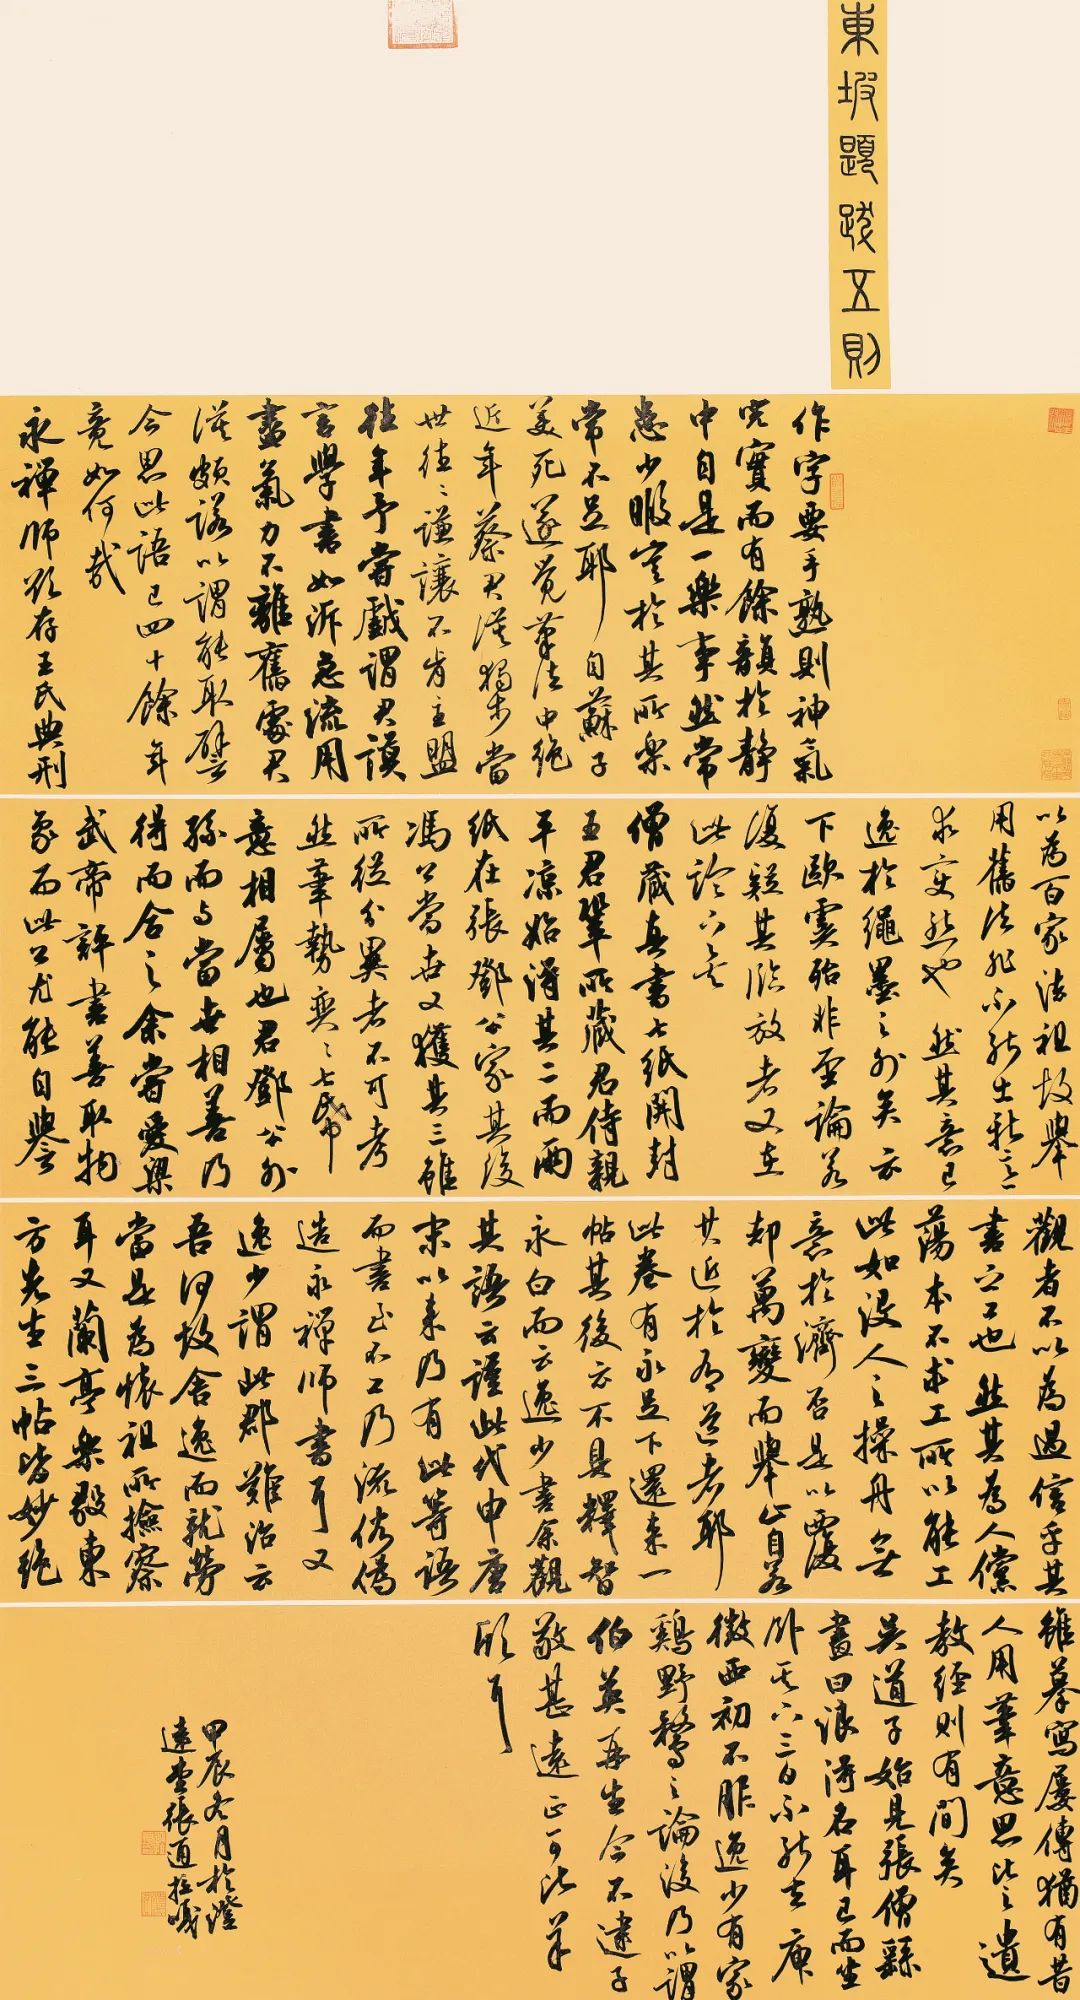 東坡題跋五則
作字要手熟則神氣
完實而有餘韻於靜
中自是一樂事然常
患少暇豈於其所樂
常不足耶 自蘇子
美死遂覺筆法中絕
近年蔡君謨獨步當
世往〻謙讓不肯主盟
往年予嘗戲謂君謨
言學書如泝急流用
盡氣力不離舊處君
謨頗諾以謂能取譬
今思此語已四十餘年
竟如何哉
永禪師欲存王氏典刑
以為百家法祖故舉
用舊法非不能出新意
求變態也 然其意已
逸於繩墨之外矣云
下歐虞殆非至論若
復疑其臨放者又在
此論下矣
僧藏真書七紙開封
王君鞏所藏君侍親
平涼始得其二而兩
紙在張鄧公家其後
馮公當世又獲其三雖
所從分異者不可考
然筆勢奕〻七紙
意相屬也君鄧公外
孫而與當世相善乃
得而合之余嘗愛梁
武帝評書善取物
象而此公尤能自譽
觀者不以為過信乎其
書之工也然其為人儻
蕩本不求工所以能工
此如没人之操舟無
意於濟否是以覆
却萬變而舉止自若
其近於有道者耶
此卷有永足下還來一
帖其後云不具釋智
永白而云逸少書余觀
其語云謹此代申唐
末以來乃有此等語
而書至不工乃流俗偽
造永禪師書耳又
逸少謂此郡難治云
吾何故舍逸而就勞
當是為懷祖所撿察
耳又蘭亭樂毅東
方先生三帖皆妙絕
雖摹寫屢傳猶有昔
人用筆意思比之遺
教經則有間矣
吳道子始見張僧繇
畫曰浪得名耳已而坐
臥其下三日不能去庾
徵西初不服逸少有家
鷄野鶩之論後乃以謂
伯英再生今不逮子
敬甚遠正可比羊
欣耳
甲辰冬月於澄
遠堂張通